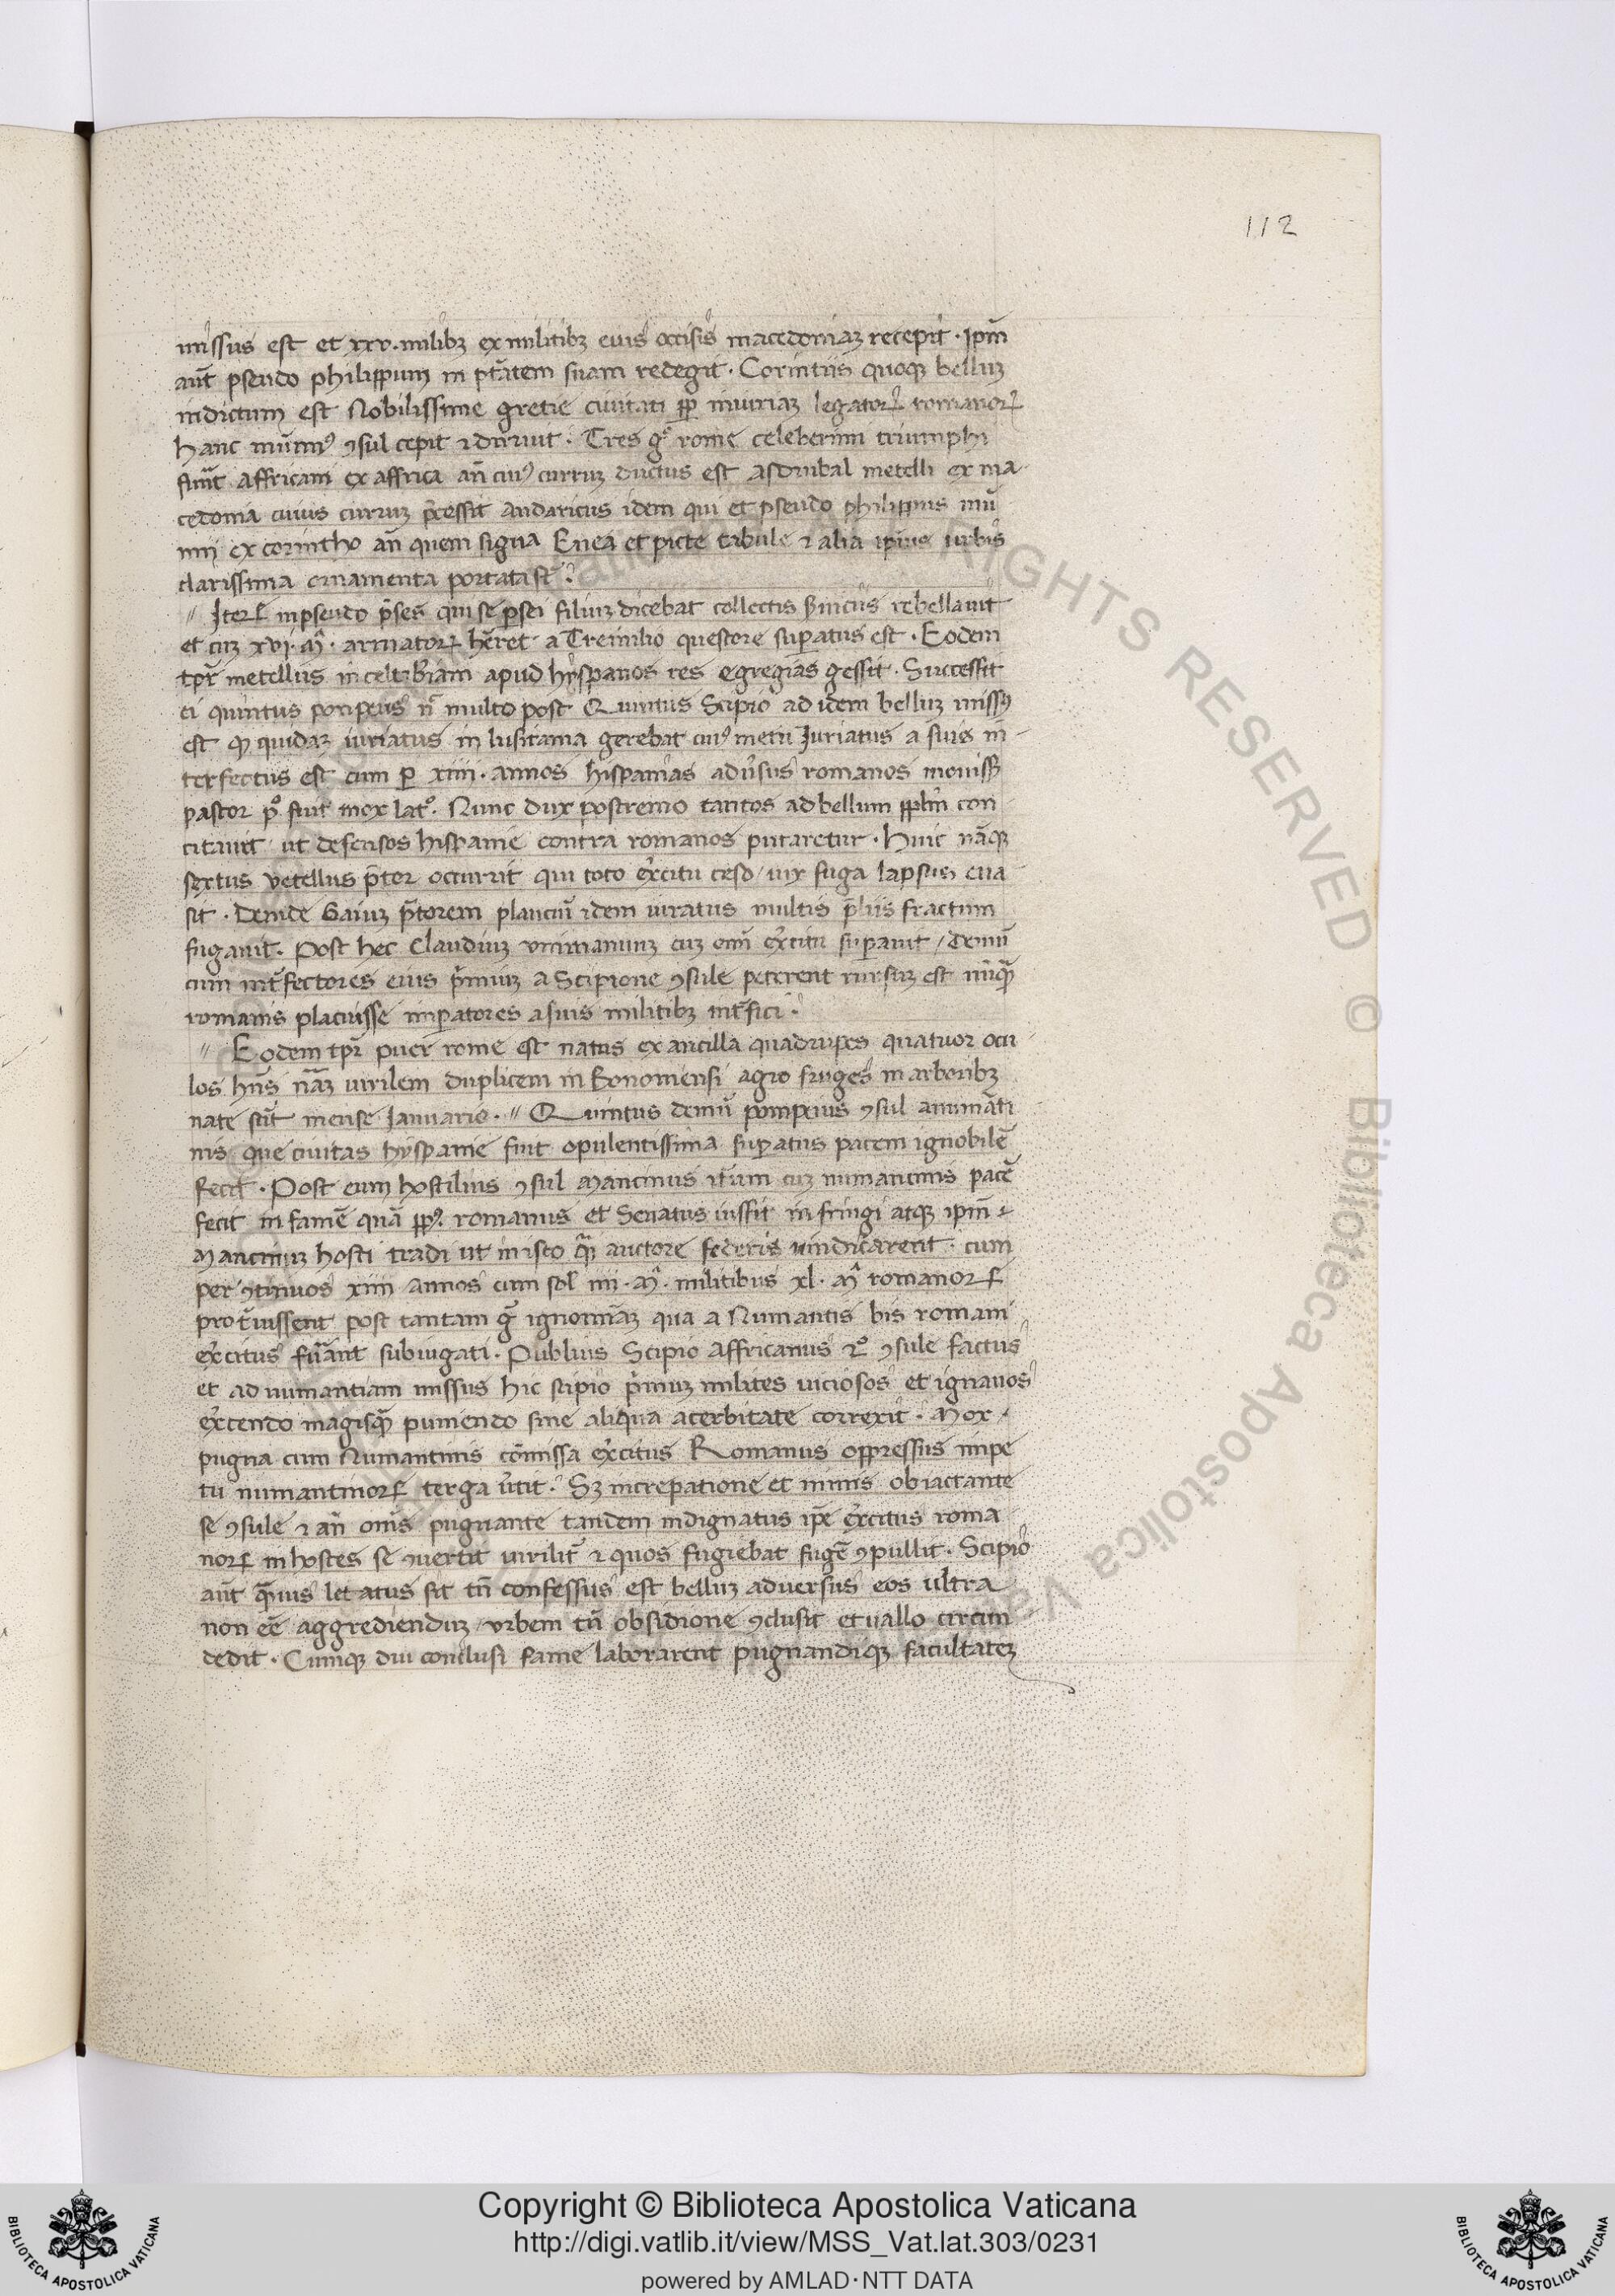 112
missus est et xxv. milibꝫ ex militibꝫ eius occisis macedoniaꝫ recepit. Ipm̄
aut̄ pseudo philippum in ptātem suam redegit. Corintiis quoqꝫ belluꝫ
indictum est Nobilissime gretie ciuitati ꝓp̄ iniuriaꝫ legatorꝝ romanorꝝ
hanc mūmiꝰ ꝯsul cepit ⁊ diruit. Tres gͦ rome celeberimi triumphi
fuer̄t affricani ex affrica an̄ cuiꝰ curruꝫ ductus est asdrubal metelli ex ma
cedonia cuius curruꝫ p̄cessit andaricus idem qui et pseudo philippus mū
mii ex corintho an̄ quem signa Enea et picte tabule ⁊ alia ipsius urbis
clarissima ornamenta portata st̄.
// Iterꝝ in pseudo p̄ses qui se psei filiuꝫ dicebat collectis ẜuiciis rebellauit
et cuꝫ xvi. m̂. armatorꝝ hēret a Tremilio questore suꝑatus est. Eodem
tpr̄ metellus in celtibr̄iam apud hyspanos res egregias gessit. Successit
ei quintus pompeius n̄ multo post Quintus Scipio ad idem belluꝫ missꝰ
est qđ quidaꝫ uiriatus in lusitania gerebat cuiꝰ metu Iuriatus a suis in
terfectus est cum ꝑ xiiii. annos hispanias adūsus romanos mouissꝫ
pastor pͦ fuit mox latͦ. Nunc dux postremo tantos ad bellum pplōs con
citauit ut defensos hispanie contra romanos putaretur. Huic nāqꝫ
sextus vetellus p̄tor occurrit qui toto ex̄citu ceso / uix fuga lapsus eua
sit. Deinde Gaiuꝫ p̄torem planciū idem uiratus multis p̄liis fractum
fugauit. Post hec Claudiuꝫ vnimanuꝫ cuꝫ omī ex̄citu suꝑauit / Demū
cum int̄fectores eius p̄miuꝫ a Scipione ꝯsule peterent rursuꝫ est nūqꝫ
romanis placuisse imꝑatores a suis militibꝫ int̄fici.
// Eodem tpr̄ puer rome est natus ex ancilla quadrupes quatuor ocu
los hn̄s nāꝫ uirilem duplicem in Bononiensi agro fruges in arboribꝫ
nate sūt mense Ianuario. // Quintus demū pompeius ꝯsul a numāti
nis que ciuitas hyspanie fuit opulentissima suꝑatus pacem ignobilē
fecit. Post eum hostilius ꝯsul Mancinus it̄um cuꝫ numancinis pacē
fecit infamē quā ppꝉꝰ romanus et Senatus iussit infringi atqꝫ ipm̄ ⁊
Mancinuꝫ hosti tradi ut in isto qꝫ auctore federis uindicarent. cum
per ꝯtinuos xiiii annos cum sol̄ iiii. m̂. militibus xl. m̂ romanorꝝ
protriuissent post tantam g̊ ignomīaꝫ qua a Numantis bis romani
ex̄citus fuerant subiugati. Publius Scipio affricanus 2ͦ ꝯsule factus
et ad numantiam missus hic scipio p̄muꝫ milites uiciosos et ignauos
ex̄cendo magisqꝫ puniendo sine aliqua acerbitate correxit. Mox
pugna cum Numantinis cōmissa ex̄citus Romanus oppressus impe
tu numantinorꝝ terga ūtit. Sꝫ increpatione et minis obiactante
se ꝯsule ⁊ an̄ omīs pugnante tandem indignatus ipē ex̄citus roma
norꝝ in hostes se ꝯuertit uirilit̄ ⁊ quos fugiebat fugē ꝯpullit. Scipio
aut̄ qꝫuis letatus sit tn̄ confessus est belluꝫ aduersus eos ultra
non eē aggrediendum vrbem tn̄ obsidione ꝯclusit et uallo circum
dedit. Cumqꝫ diu conclusi fame laborarent pugnandiqꝫ facultateꝫ
Copyright © Biblioteca Apostolica Vaticana
http://digi.vatlib.it/view/MSS_Vat.lat.303/0231
powered by AMLAD·NTT DATA